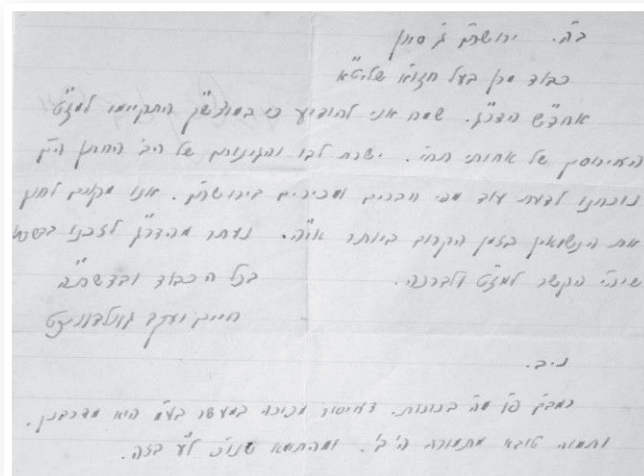 ב"ה. ירושת"ו ג' סיון
כבוד מרן בעל חזו"א שליט"א
אחדש"ה הדר"ג. שמח אני להודיע כי במוצש"ק התקיימו למז"ט
האירוסין של אחותי תחי'. ישרת לבו והגינותם של הב' החתן הי"ו
נוכחנו לדעת עוד מפי חברים ומכירים בירושת"ו. אנו מקוים לחוג
את הנשואין בזמן הקרוב ביותר אי"ה. נעתר מהדר"ג לזכנו בברכת
שיהי' הקשר למז"ט ולברכה. בכל הכבוד ובדשת"ה
חיים יעקב גולדוויכט
נ.ב.
ברמב"ם פ"ו מה' בכורות. דאיסור מכירה במעשר בע"ח היא מדרבנן.
ותמוה טובא מתמורה ח' ב'. ומהתימא שנו"כ לע בזה.